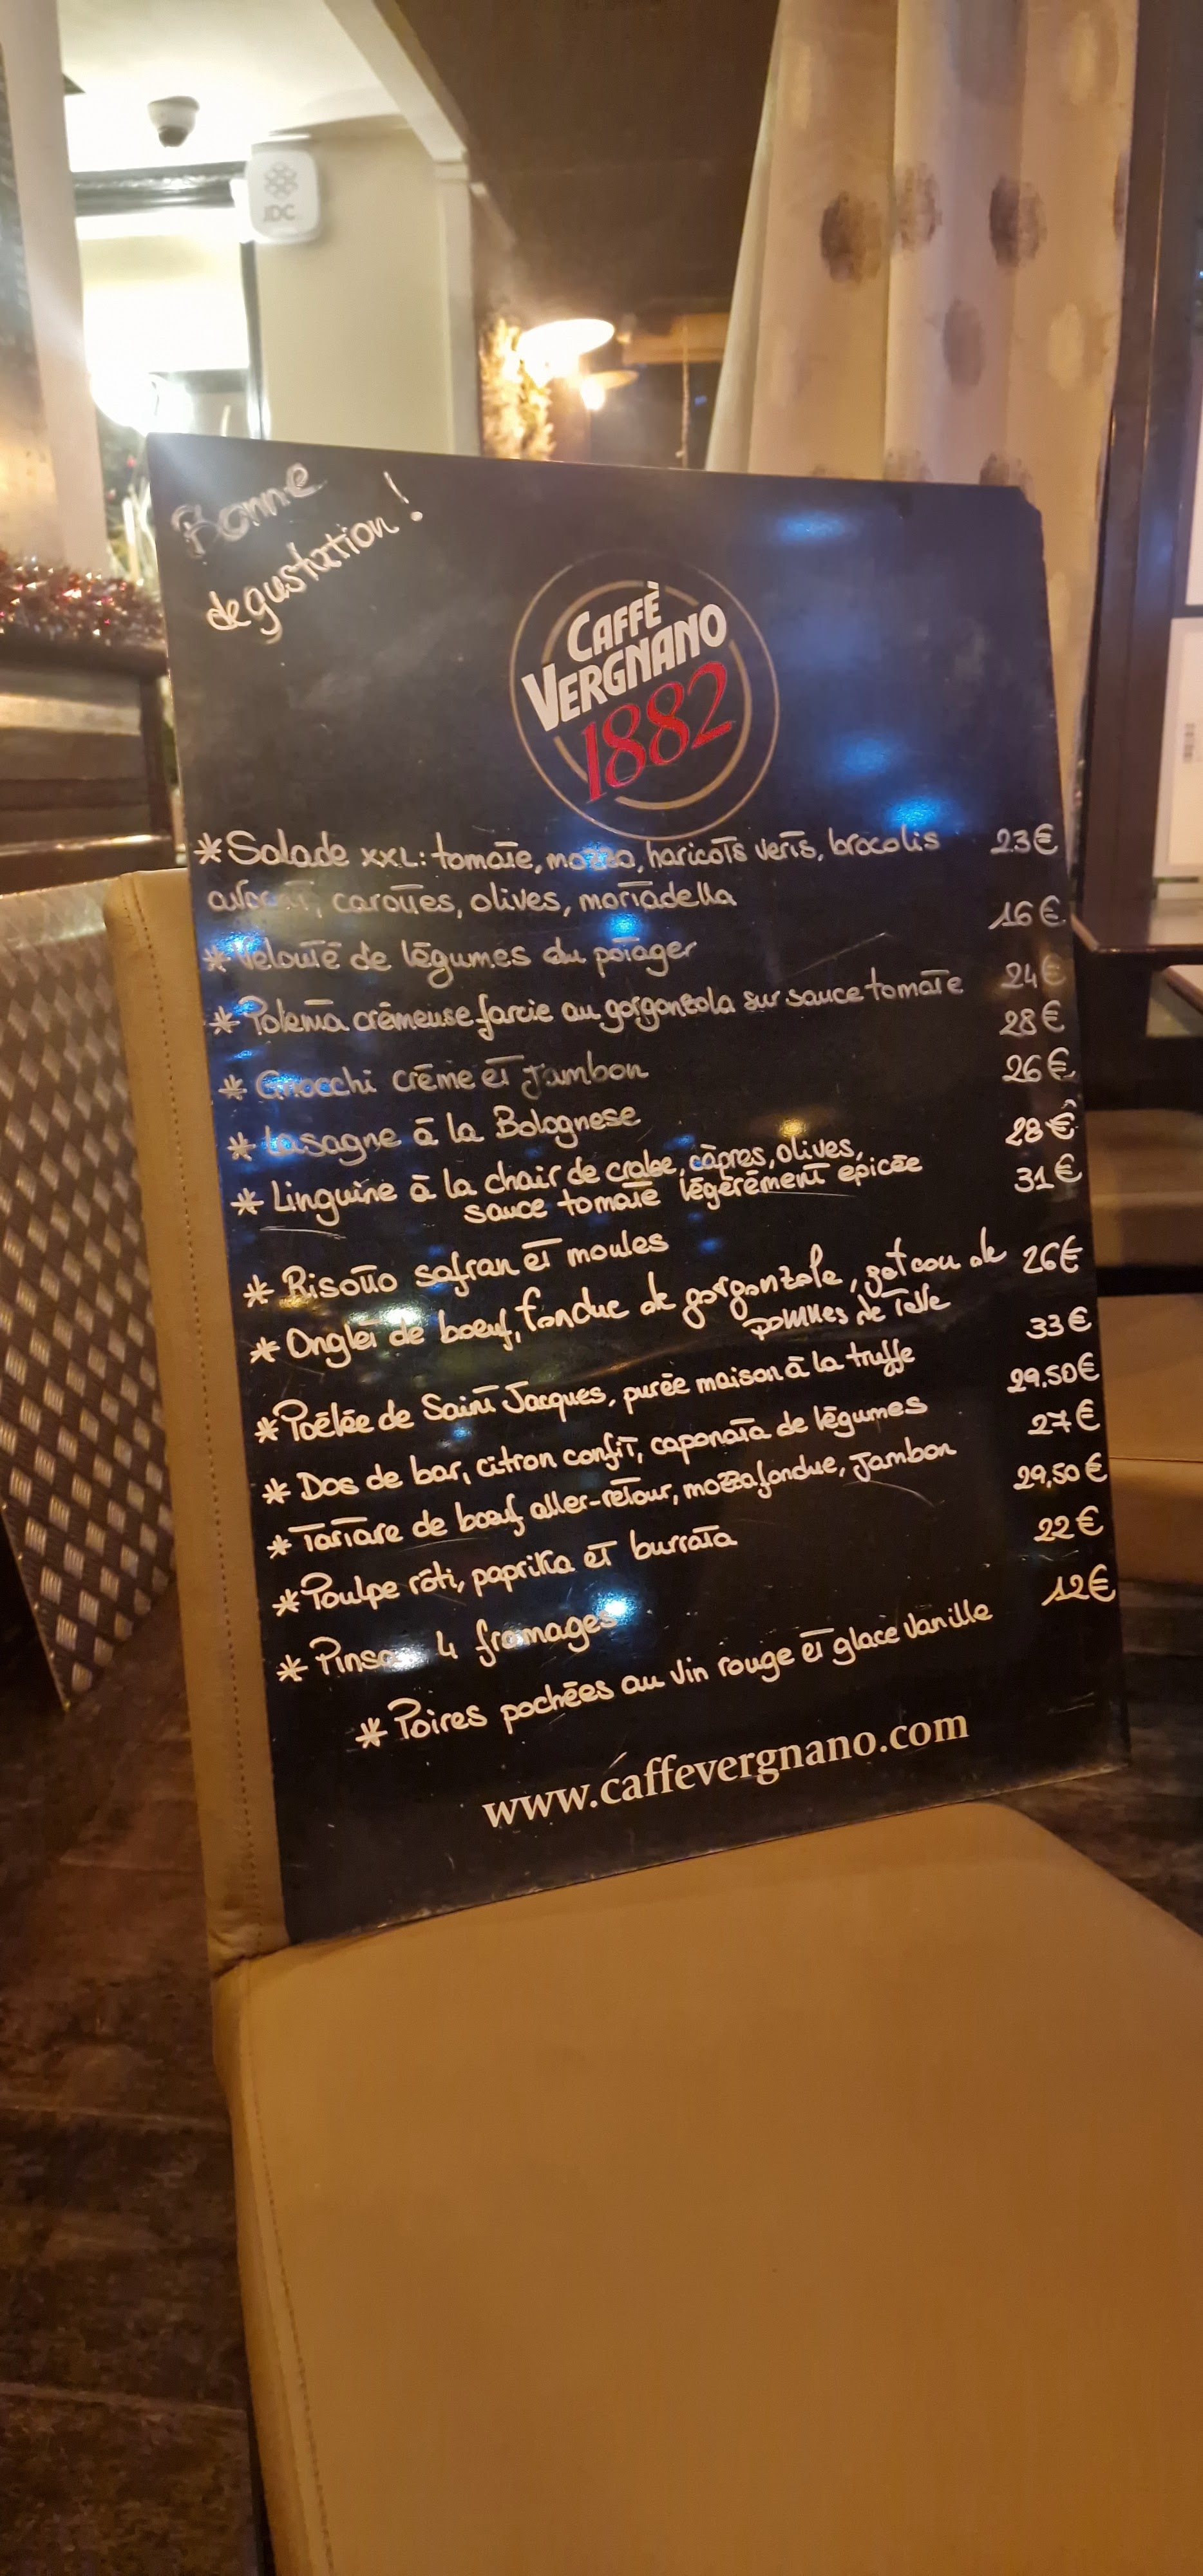 JDC
Bonne
degustation !
CAFFÈ
VERGNANO
1882
* Salade XXL: tomate, mozza, haricots verts, brocolis 23€
avocat, carottes, olives, mortadella
* Velouté de légumes du potager 16€
* Polenta crémeuse farcie au gorgonzola sur sauce tomate 24€
* Gnocchi crème et Jambon 28€
* Lasagne à la Bolognese 26€
* Linguine à la chair de crabe, câpres, olives, 28€
sauce tomate légèrement épicée
* Risotto safran et moules 31€
* Onglet de boeuf, fondue de gorgonzola, gateau de 26€
pommes de Terre
* Poêlée de Saint Jacques, purée maison à la truffe 33€
* Dos de bar, citron confit, caponata de légumes 29.50€
* Tartare de boeuf aller-retour, mozza fondue, Jambon 27€
* Poulpe rôti, paprika et burrata 29,50€
* Pinsa 4 fromages 22€
* Poires pochées au vin rouge et glace vanille 12€
www.caffevergnano.com